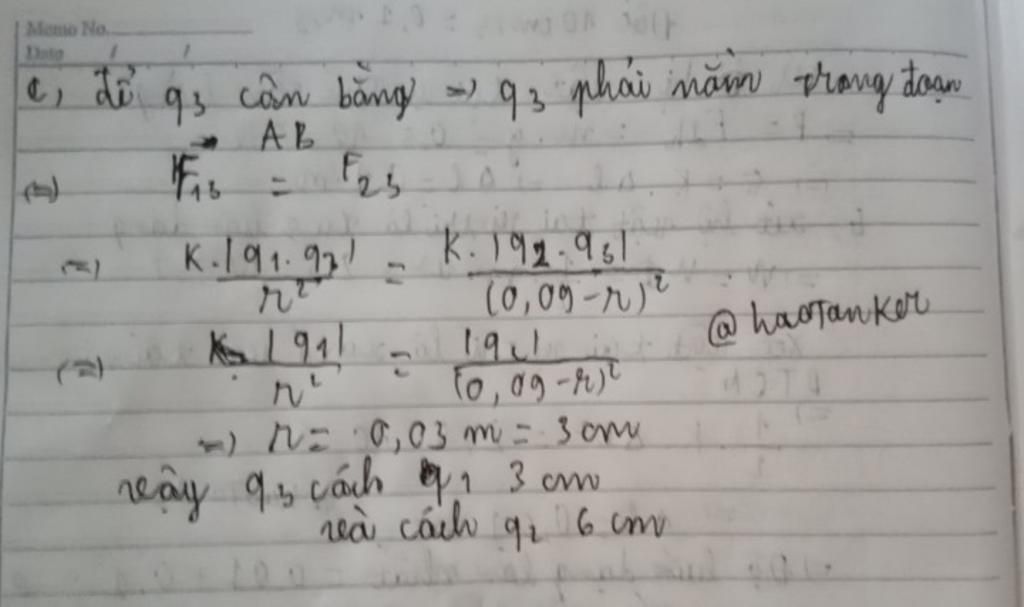 Memo No.
Date / /
c, để q3 cân bằng => q3 phải nằm trong đoạn
AB
(=) F13 = F23
(=) K.|q1.q3| / r² = K.|q2.q3| / (0,09-r)²
(=) |q1| / r² = |q2| / (0,09-r)²
@haoTanKer
=) r = 0,03 m = 3 cm
vậy q3 cách q1 3 cm
và cách q2 6 cm